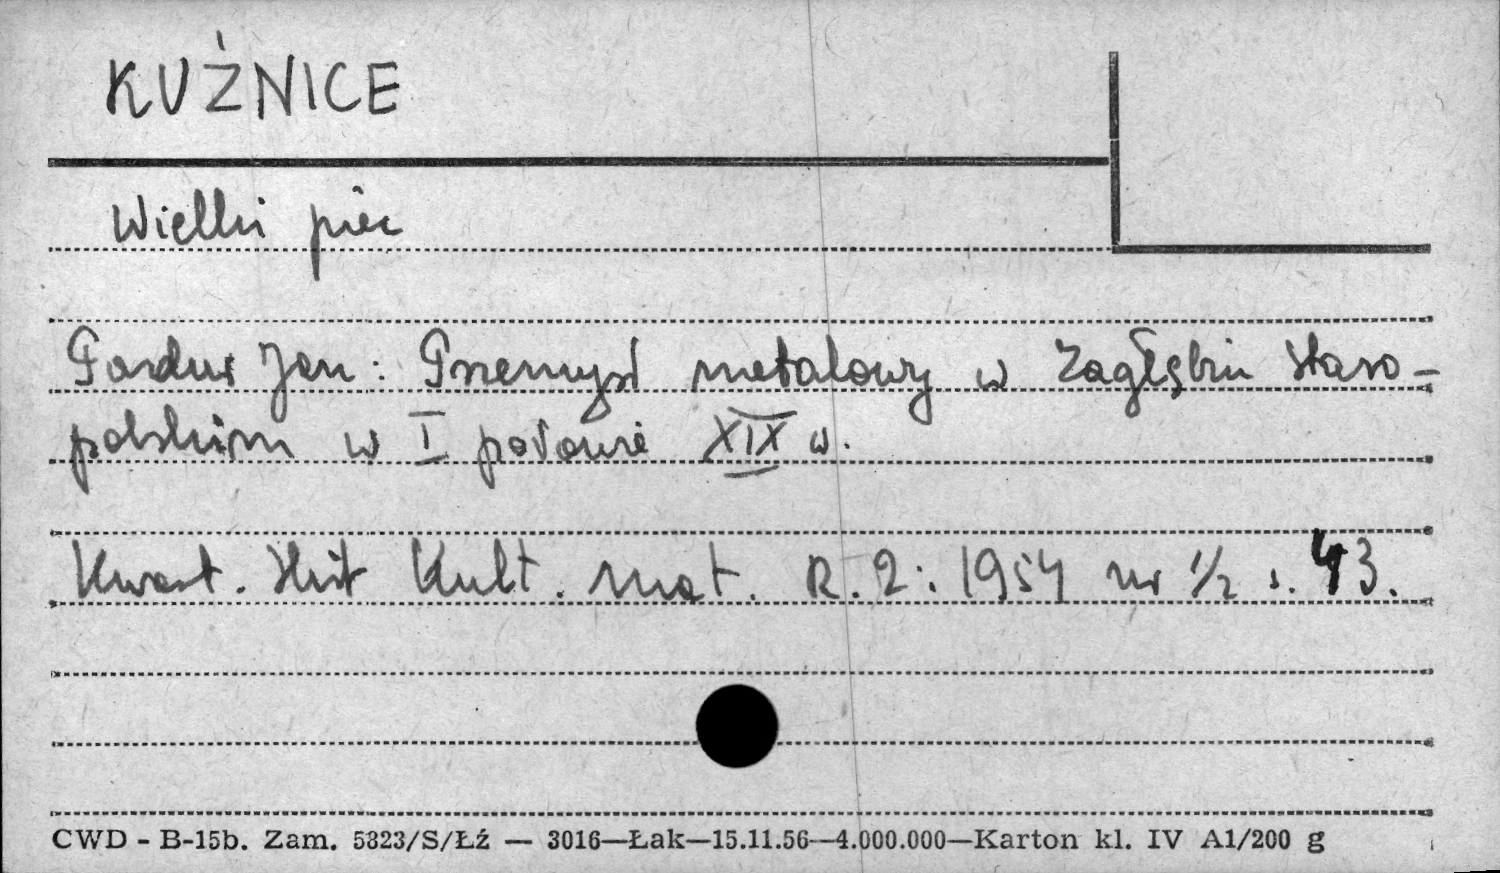 KUŹNICE
Wielki piec
Pazdur Jan: Przemysł metalowy w Zagłębiu Staro-
polskim w I połowie XIX w.
Kwart. Hist Kult. mat. R. 2: 1954 nr 1/2 s. 43.
CWD - B-15b. Zam. 5823/S/Łź — 3016—Łak—15.11.56—4.000.000—Karton kl. IV A1/200 g